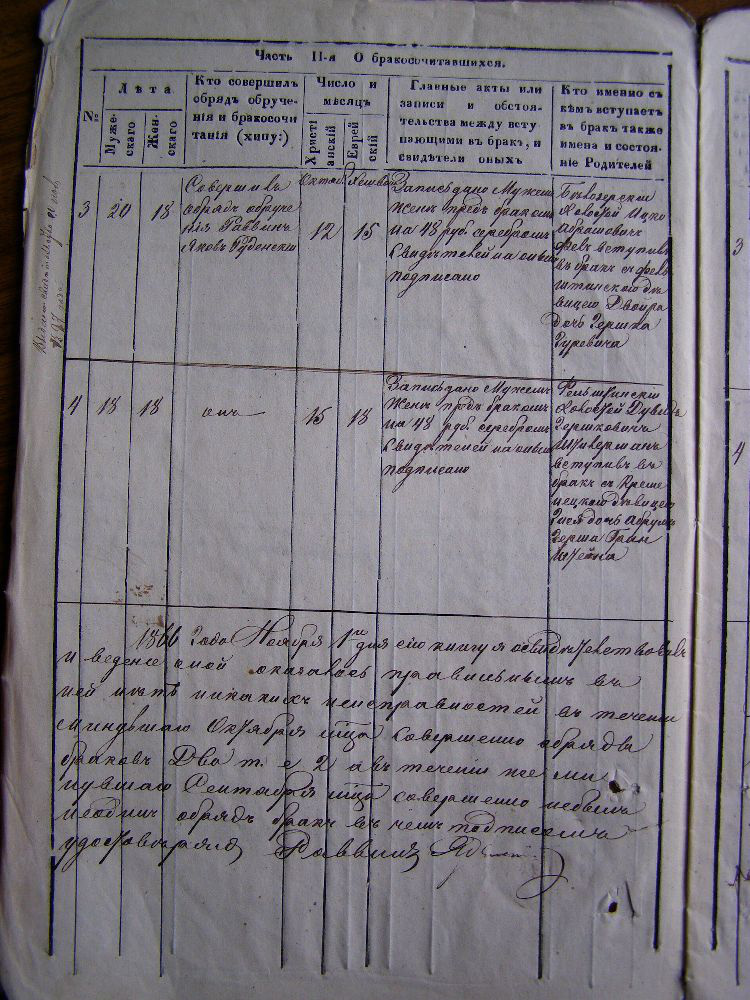 Часть II-я О бракосочитавшихся.
№
Лѣта
Муже-
скаго
Жен-
скаго
Кто совершилъ
обрядъ обруче-
нія и бракосочи
танія (хипу:)
Число и
мѣсяцъ
Христі
анскій
Еврей
скій
Главные акты или
записи и обстоя-
тельства между всту
пающими въ бракъ, и
свидѣтели оныхъ
Кто именно съ
кѣмъ вступаетъ
въ бракъ также
имена и состоя-
ніе Родителей
3
20
18
Совершивъ
обрядъ обруче
нія Раввинъ
Яковъ
Октяб
12
Хешван
15
Запись дано Мужем
Жене предъ браком
на 48 руб серебромъ
Свидѣтелей на оным
подписано
Ицко
Абрамовичъ
вступивъ
въ бракъ съ
дѣ
вицею Двойра
дочь Гершка
Гуревича
4
18
18
онъ
15
18
Запись дано Мужемъ
Жене предъ бракомъ
на 48 руб серебромъ
Свидѣтелей на оным
подписано
Дувидъ
Гершковичъ
вступивъ въ
бракъ съ Креме
нецкою дѣвицею
дочь Абрумъ
Герша
1866 Года Ноября 1го дня сію книгу я освидѣтельствовавъ
и веденіе оной оказалось правильнымъ въ
ней нѣтъ никакихъ неисправностей въ теченіи
минувшаго Октября мца совершено обрядъ
браковъ Два т. е 2 а въ теченіи же ми
нувшаго Сентября мца совершено
обрядъ бракъ въ чемъ подписомъ
удостовѣряю Раввинъ
3
4